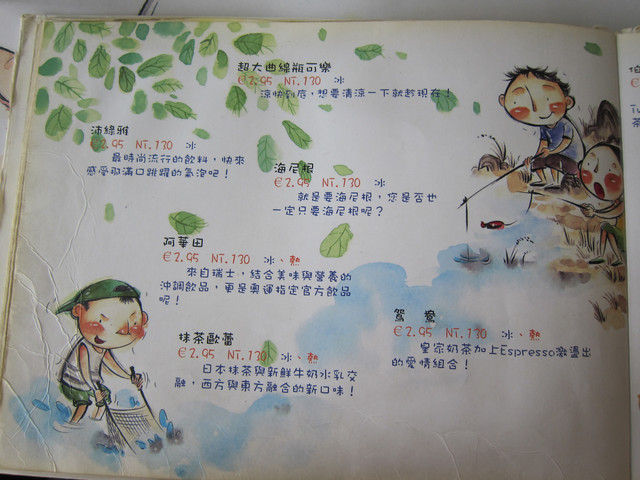 超大曲線瓶可樂
€2.95 NT.130 冰
涼快到底，想要清涼一下就趁現在！
沛綠雅
€2.95 NT.130 冰
最時尚流行的飲料，快來
感受那滿口跳躍的氣泡吧！
海尼根
€2.95 NT.130 冰
就是要海尼根，您是否也
一定只要海尼根呢？
阿華田
€2.95 NT.130 冰、熱
來自瑞士，結合美味與營養的
沖調飲品，更是奧運指定官方飲品
呢！
抹茶歐蕾
€2.95 NT.130 冰、熱
日本抹茶與新鮮牛奶水乳交
融，西方與東方融合的新口味！
鴛鴦
€2.95 NT.130 冰、熱
皇家奶茶加上Espresso激盪出
的愛情組合！